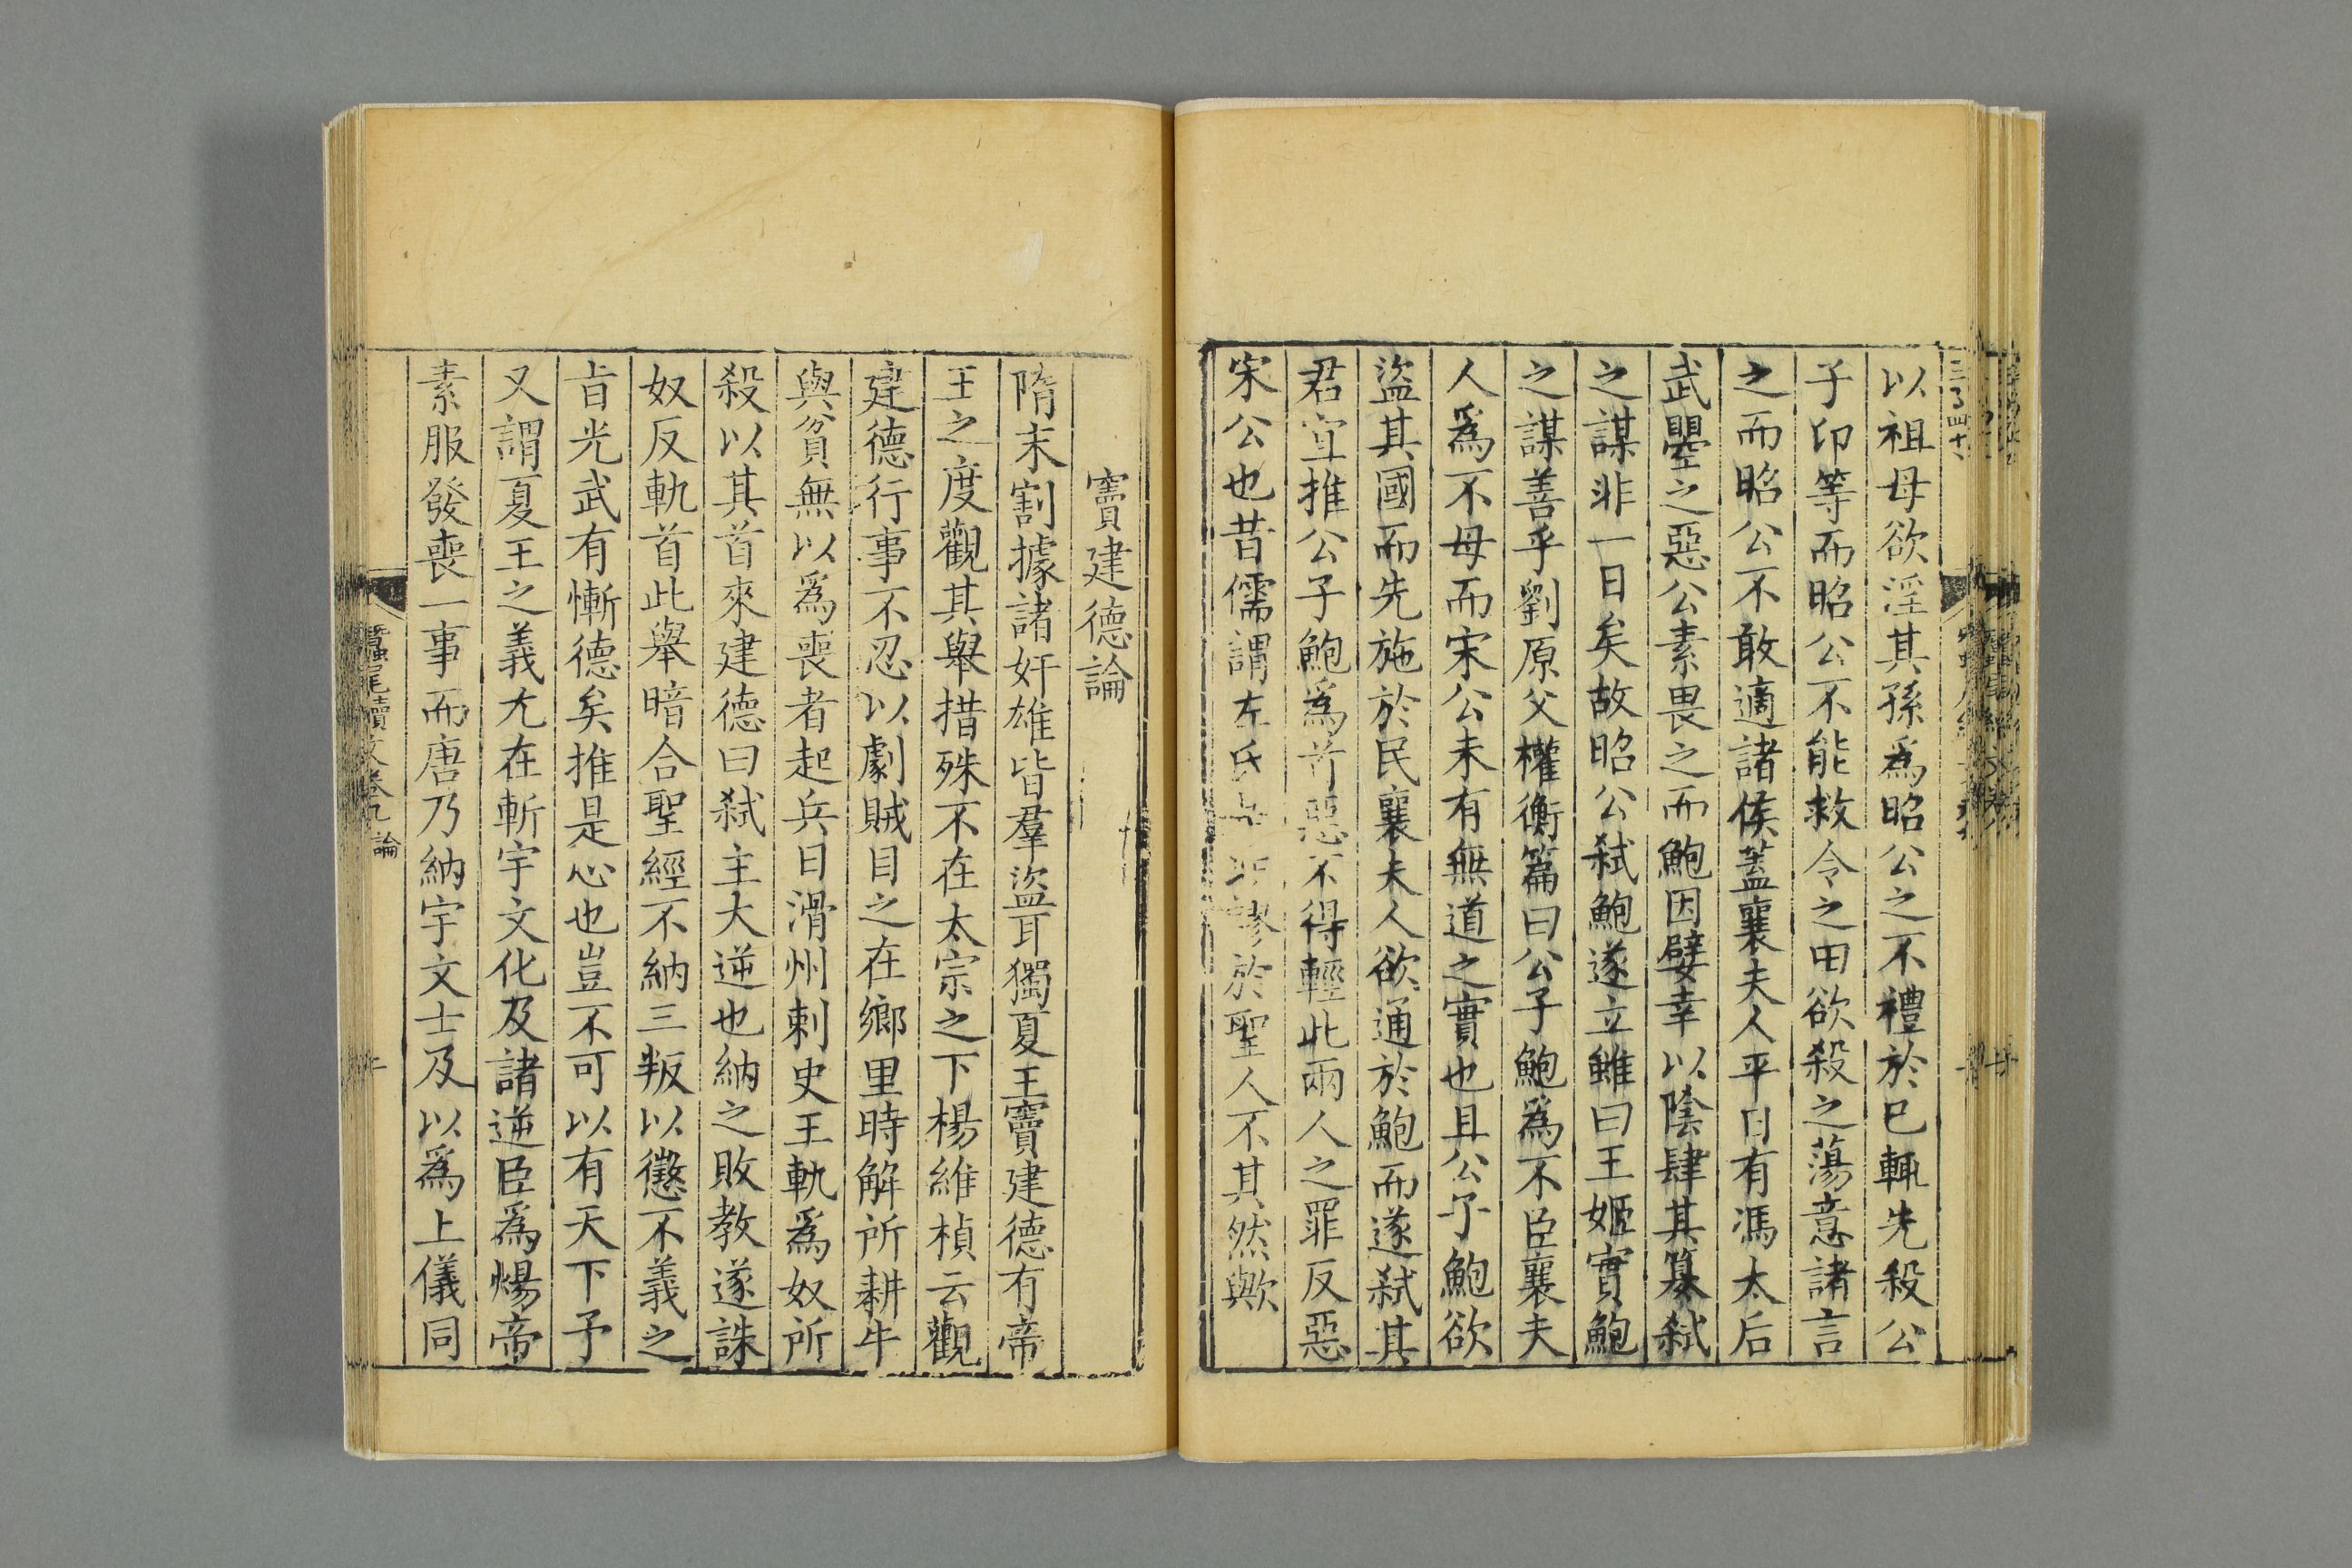 以祖母欲淫其孫爲昭公之不禮於已輒先殺公
子卬等而昭公不能救令之田欲殺之蕩意諸言
之而昭公不敢適諸侯蓋襄夫人平日有馮太后
武曌之惡公素畏之而鮑因嬖幸以陰肆其簒弑
之謀非一日矣故昭公弑鮑遂立雖曰王姬實鮑
之謀善乎劉原父權衡篇曰公子鮑爲不臣襄夫
人爲不母而宋公未有無道之實也且公子鮑欲
盜其國而先施於民襄夫人欲通於鮑而遂弑其
君宜推公子鮑爲首惡不得輕此兩人之罪反惡
宋公也昔儒謂左氏謬於聖人不其然歟
竇建德論
隋末割據諸奸雄皆羣盜耳獨夏王竇建德有帝
王之度觀其舉措殊不在太宗之下楊維楨云觀
建德行事不忍以劇賊目之在鄉里時解所耕牛
與貧無以爲喪者起兵日滑州剌史王軌爲奴所
殺以其首來建德曰弑主大逆也納之敗教遂誅
奴反軌首此舉暗合聖經不納三叛以懲不義之
旨光武有慚德矣推是心也豈不可以有天下予
又謂夏王之義尤在斬宇文化及諸逆臣爲煬帝
素服發喪一事而唐乃納宇文士及以爲上儀同
蠶尾續文卷九 論